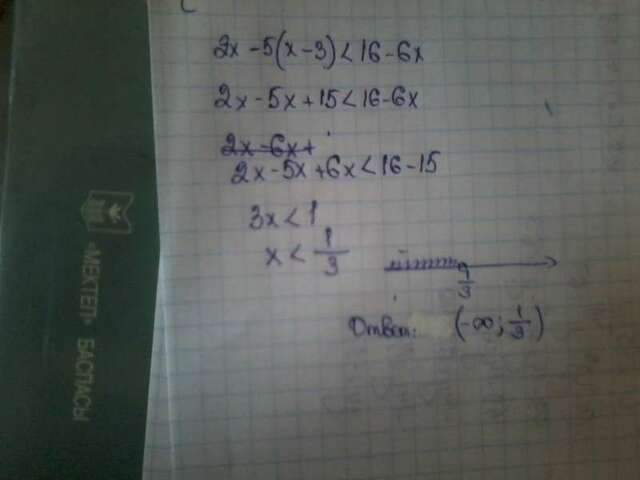 2x-5(x-3)<16-6x
2x-5x+15<16-6x
2x-6x+
2x-5x+6x<16-15
3x<1
x<1/3
1/3
Ответ: (-∞; 1/3)
«МЕКТЕП» БАСПАСЫ